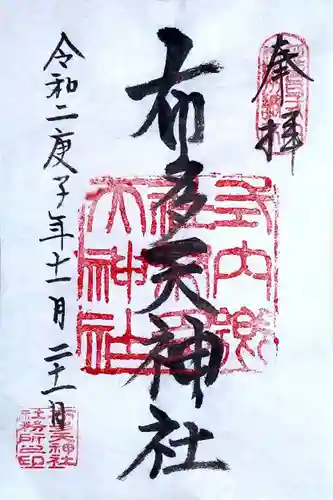 奉拝
布多天神社
式内郷
社布多
天神社
令和二庚子年十一月二十一日
布多天神
社務所之印